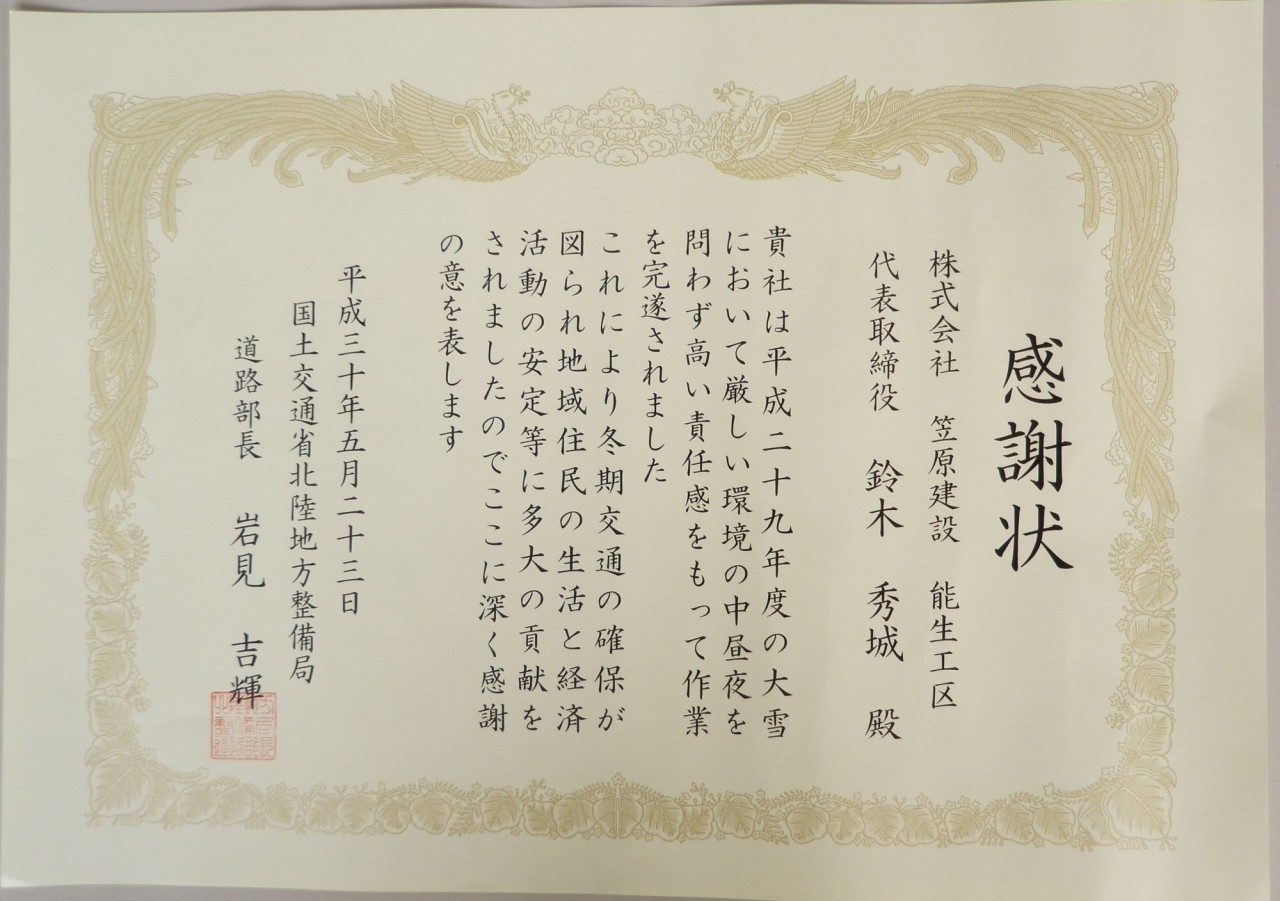 感謝状
株式会社 笠原建設 能生工区
代表取締役 鈴木 秀城 殿
貴社は平成二十九年度の大雪
において厳しい環境の中昼夜を
問わず高い責任感をもって作業
を完遂されました
これにより冬期交通の確保が
図られ地域住民の生活と経済
活動の安定等に多大の貢献を
されましたのでここに深く感謝
の意を表します
平成三十年五月二十三日
国土交通省北陸地方整備局
道路部長 岩見 吉輝